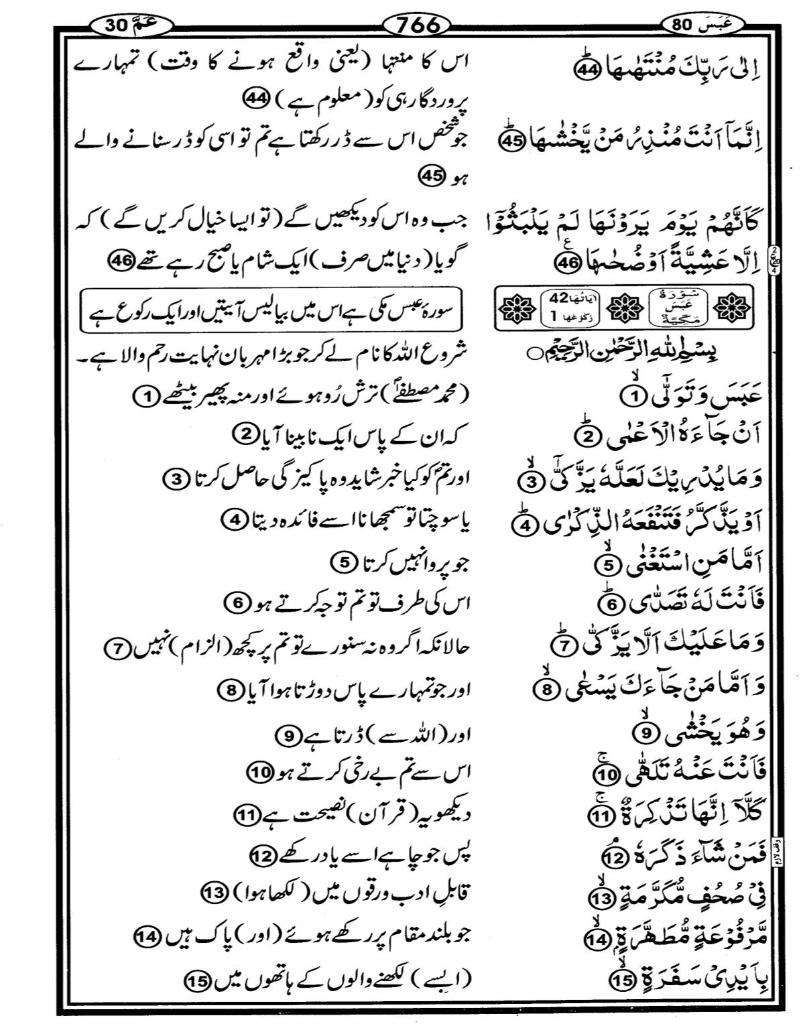 عَبَسَ 80
766
عَمَّ 30
اِلٰى رَبِّكَ مُنْتَهٰىهَا ؕ 44
اس کا منتہا (یعنی واقع ہونے کا وقت) تمہارے
پروردگار ہی کو (معلوم ہے) 44
اِنَّمَاۤ اَنْتَ مُنْذِرُ مَنْ يَّخْشٰىهَا ؕ 45
جو شخص اس سے ڈر رکھتا ہے تم تو اسی کو ڈر سنانے والے
ہو 45
كَاَنَّهُمْ يَوْمَ يَرَوْنَهَا لَمْ يَلْبَثُوْۤا
اِلَّا عَشِيَّةً اَوْ ضُحٰىهَا ع 46
جب وہ اس کو دیکھیں گے (تو ایسا خیال کریں گے) کہ
گویا (دنیا میں صرف) ایک شام یا صبح رہے تھے 46
سُوْرَةُ عَبَسَ مَكِّيَّةٌ
اٰيَاتُهَا 42
رُكُوْعُهَا 1
سورۂ عبس مکی ہے اس میں بیالیس آیتیں اور ایک رکوع ہے
بِسْمِ اللهِ الرَّحْمٰنِ الرَّحِيْمِ ○
شروع اللہ کا نام لے کر جو بڑا مہربان نہایت رحم والا ہے۔
عَبَسَ وَ تَوَلّٰۤى ۙ 1
(محمد مصطفےٰؐ) ترش رُو ہوئے اور منہ پھیر بیٹھے 1
اَنْ جَآءَهُ الْاَعْمٰى ؕ 2
کہ ان کے پاس ایک نابینا آیا 2
وَ مَا يُدْرِيْكَ لَعَلَّهٗ يَزَّكّٰۤى ۙ 3
اور تم کو کیا خبر شاید وہ پاکیزگی حاصل کرتا 3
اَوْ يَذَّكَّرُ فَتَنْفَعَهُ الذِّكْرٰى ؕ 4
یا سوچتا تو سمجھانا اسے فائدہ دیتا 4
اَمَّا مَنِ اسْتَغْنٰى ۙ 5
جو پروا نہیں کرتا 5
فَاَنْتَ لَهٗ تَصَدّٰى ؕ 6
اس کی طرف تو تم توجہ کرتے ہو 6
وَ مَا عَلَيْكَ اَلَّا يَزَّكّٰى ؕ 7
حالانکہ اگر وہ نہ سنورے تو تم پر کچھ (الزام) نہیں 7
وَ اَمَّا مَنْ جَآءَكَ يَسْعٰى ۙ 8
اور جو تمہارے پاس دوڑتا ہوا آیا 8
وَ هُوَ يَخْشٰى ۙ 9
اور (اللہ سے) ڈرتا ہے 9
فَاَنْتَ عَنْهُ تَلَهّٰى ۚ 10
اس سے تم بے رخی کرتے ہو 10
كَلَّاۤ اِنَّهَا تَذْكِرَةٌ ۚ 11
دیکھو یہ (قرآن) نصیحت ہے 11
فَمَنْ شَآءَ ذَكَرَهٗ ۘ 12
وقف لازم
پس جو چاہے اسے یاد رکھے 12
فِیْ صُحُفٍ مُّكَرَّمَةٍ ۙ 13
قابلِ ادب ورقوں میں (لکھا ہوا) 13
مَّرْفُوْعَةٍ مُّطَهَّرَةٍۭ ۙ 14
جو بلند مقام پر رکھے ہوئے (اور) پاک ہیں 14
بِاَيْدِیْ سَفَرَةٍ ۙ 15
(ایسے) لکھنے والوں کے ہاتھوں میں 15